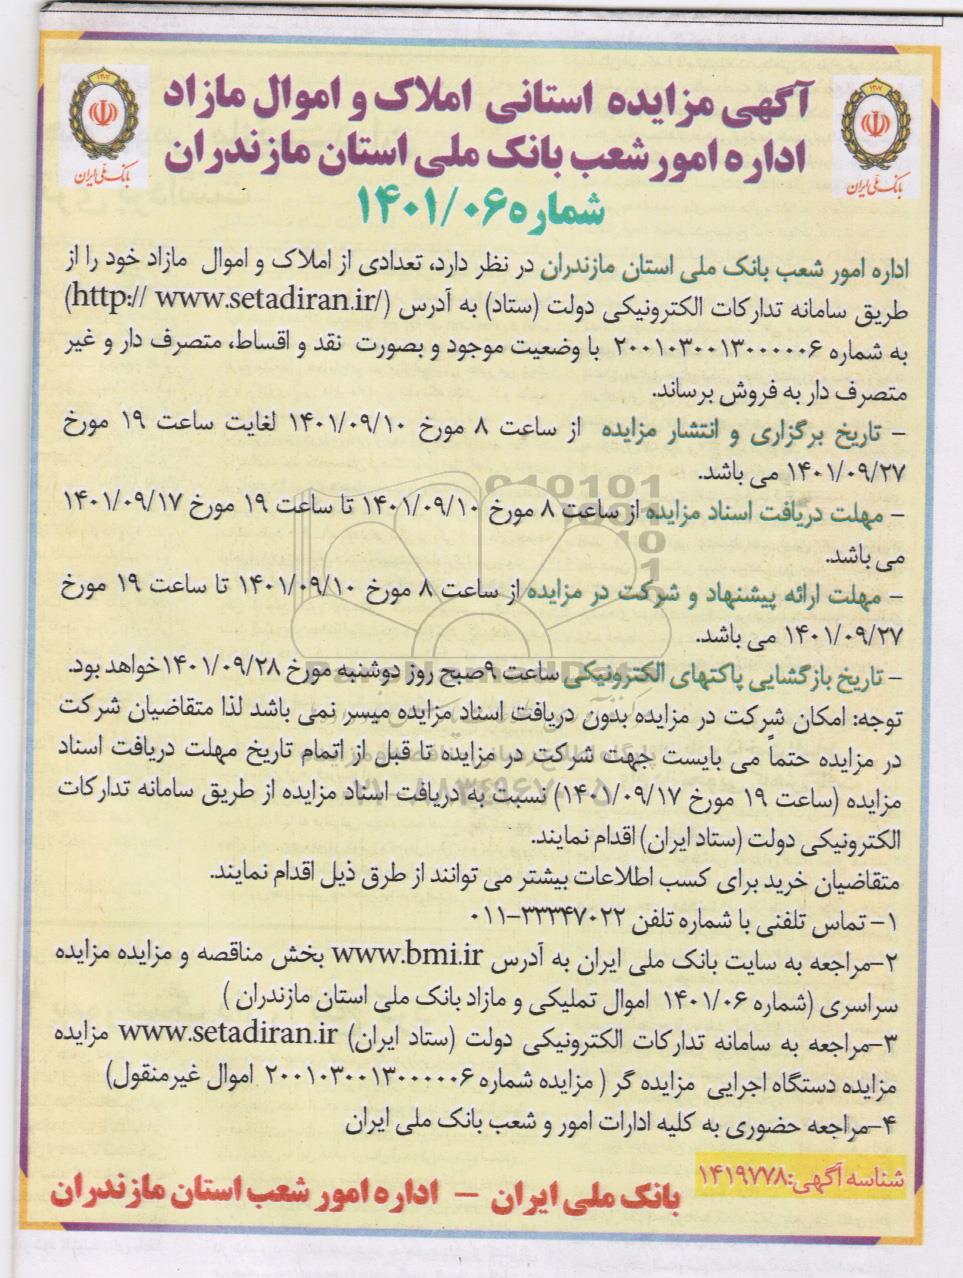 آگهی مزایده استانی املاک و اموال مازاد
اداره امور شعب بانک ملی استان مازندران
شماره ۱۴۰۱/۰۶
بانک ملی ایران
بانک ملی ایران
اداره امور شعب بانک ملی استان مازندران در نظر دارد، تعدادی از املاک و اموال مازاد خود را از
طریق سامانه تدارکات الکترونیکی دولت (ستاد) به آدرس (http:// www.setadiran.ir/)
به شماره ۲۰۰۱۰۳۰۰۱۳۰۰۰۰۰۶ با وضعیت موجود و بصورت نقد و اقساط، متصرف دار و غیر
متصرف دار به فروش برساند.
– تاریخ برگزاری و انتشار مزایده از ساعت ۸ مورخ ۱۴۰۱/۰۹/۱۰ لغایت ساعت ۱۹ مورخ
۱۴۰۱/۰۹/۲۷ می باشد.
– مهلت دریافت اسناد مزایده از ساعت ۸ مورخ ۱۴۰۱/۰۹/۱۰ تا ساعت ۱۹ مورخ ۱۴۰۱/۰۹/۱۷
می باشد.
– مهلت ارائه پیشنهاد و شرکت در مزایده از ساعت ۸ مورخ ۱۴۰۱/۰۹/۱۰ تا ساعت ۱۹ مورخ
۱۴۰۱/۰۹/۲۷ می باشد.
– تاریخ بازگشایی پاکتهای الکترونیکی ساعت ۹صبح روز دوشنبه مورخ ۱۴۰۱/۰۹/۲۸خواهد بود.
توجه: امکان شرکت در مزایده بدون دریافت اسناد مزایده میسر نمی باشد لذا متقاضیان شرکت
در مزایده حتماً می بایست جهت شرکت در مزایده تا قبل از اتمام تاریخ مهلت دریافت اسناد
مزایده (ساعت ۱۹ مورخ ۱۴۰۱/۰۹/۱۷) نسبت به دریافت اسناد مزایده از طریق سامانه تدارکات
الکترونیکی دولت (ستاد ایران) اقدام نمایند.
متقاضیان خرید برای کسب اطلاعات بیشتر می توانند از طرق ذیل اقدام نمایند.
۱– تماس تلفنی با شماره تلفن ۳۳۳۴۷۰۲۲–۰۱۱
۲–مراجعه به سایت بانک ملی ایران به آدرس www.bmi.ir بخش مناقصه و مزایده مزایده
سراسری (شماره ۱۴۰۱/۰۶ اموال تملیکی و مازاد بانک ملی استان مازندران )
۳–مراجعه به سامانه تدارکات الکترونیکی دولت (ستاد ایران) www.setadiran.ir مزایده
مزایده دستگاه اجرایی مزایده گر ( مزایده شماره ۲۰۰۱۰۳۰۰۱۳۰۰۰۰۰۶ اموال غیرمنقول)
۴–مراجعه حضوری به کلیه ادارات امور و شعب بانک ملی ایران
شناسه آگهی:۱۴۱۹۷۷۸
بانک ملی ایران – اداره امور شعب استان مازندران